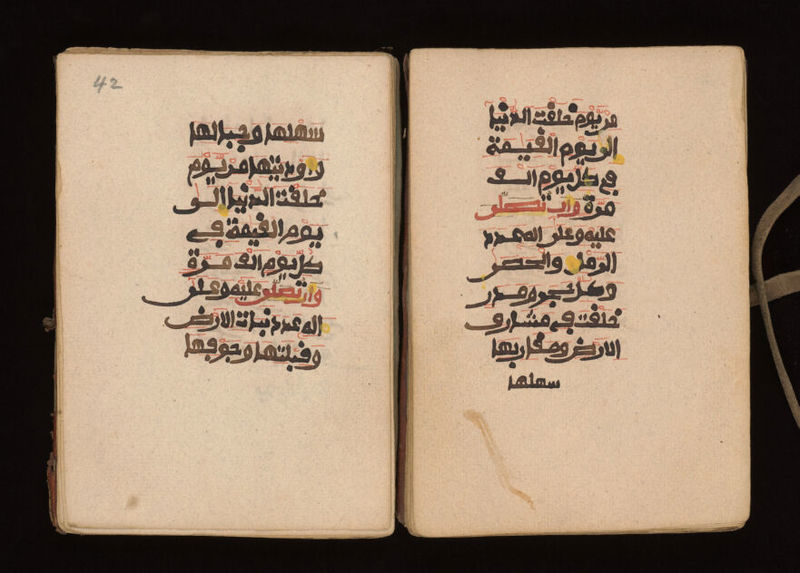 من يوم خلقت الدنيا
الى يوم القيمة
في كل يوم الف
مرة وان تصلى
عليه وعلى اله عدد
الرمل والحصى
وكل حجر ومدر
خلقت في مشارق
الارض ومغاربها
سهلها
42
سهلها وجبالها
واوديتها من يوم
خلقت الدنيا الى
يوم القيمة في
كل يوم الف مرة
وان تصلى عليه وعلى
اله عدد نبات الارض
وقبلتها وجوفها